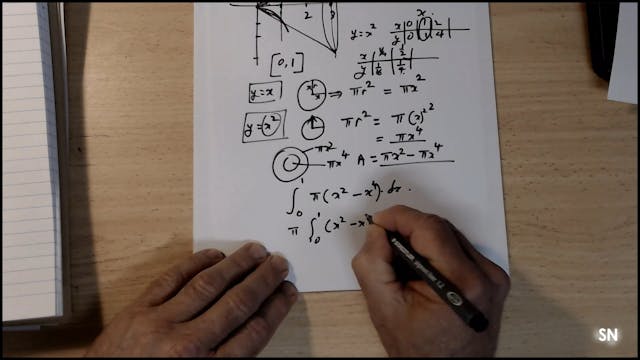 2
x
y = x² x 0 1 2
y 0 1 4
[0,1] x ¼ ½
y 1/16 ¼
y = x x ⇒ πr² = πx²
y = x² πr² = π(x)²²
= πx⁴
πx²
πx⁴ A = πx² − πx⁴
∫₀¹ π(x² − x⁴) · dx .
π ∫₀¹ (x² − x⁴
SN